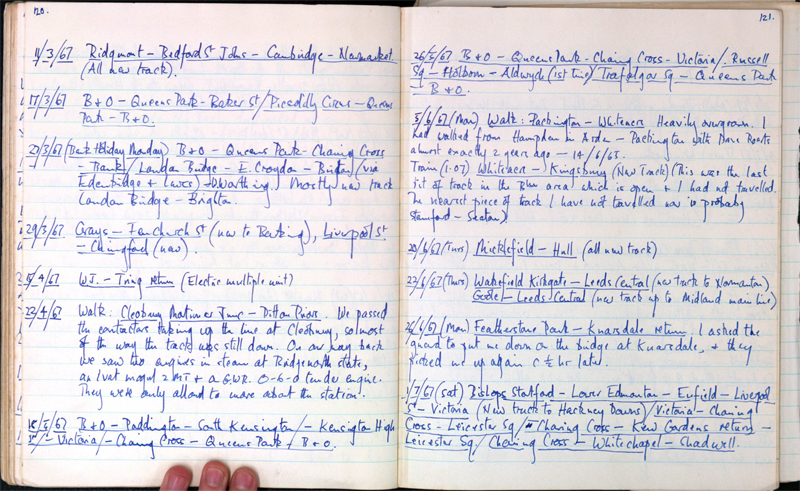 120.
11/3/67 Ridgmont – Bedford St Johns – Cambridge – Newmarket
(All new track).
17/3/67 B+O – Queens Park – Baker St / Piccadilly Circus – Queens
Park – B+O.
27/3/67 (Bank Holiday Monday) B+O – Queens Park – Charing Cross
– Bank / London Bridge – E. Croydon – Brighton (via
Edenbridge + Lewes) – Worthing. Mostly new track
London Bridge – Brighton.
29/3/67 Grays – Fenchurch St (new to Barking), Liverpool St
– Chingford (new).
15/4/67 W.J. – Tring return (Electric multiple unit)
23/4/67 Walk: Cleobury Mortimer Junc – Ditton Priors. We passed
the contractors taking up the line at Cleobury, so most
of the way the track was still down. On our way back
we saw two engines in steam at Bridgenorth state,
an Ivatt mogul 2MT + a G.W.R. 0-6-0 tender engine.
They were only allowed to move about the station.
18/5/67 B+O – Paddington – South Kensington / – Kensington High
St / – Victoria / – Charing Cross – Queens Park / B+O.
121.
26/5/67 B+O – Queens Park – Charing Cross – Victoria / Russell
Sq – Holborn – Aldwych (1st time) / Trafalgar Sq – Queens Park
– B+O.
5/6/67 (Mon) Walk: Packington – Whitacre. Heavily overgrown. I
had walked from Hampden in Arden – Packington with Dave Boots
almost exactly 2 years ago – 14/6/65.
Train (1.07) Whitacre – Kingsbury (New Track) (This was the last
bit of track in the Blue area which is open + I had not travelled.
The nearest piece of track I have not travelled now is probably
Stamford – Seaton)
20/6/67 (Tues) Micklefield – Hull (all new track)
22/6/67 (Thurs) Wakefield Kirkgate – Leeds Central (new track to Normanton)
Goole – Leeds Central (new track up to Midland main line)
26/6/67 (Mon) Featherstone Park – Knarsdale return. I asked the
guard to put me down on the bridge at Knarsdale, + they
picked me up again c ½ hr later.
1/7/67 (Sat) Bishops Stortford – Lower Edmonton – Enfield – Liverpool
St – Victoria (New track to Hackney Downs) / Victoria – Charing
Cross – Leicester Sq / Charing Cross – Kew Gardens return –
Leicester Sq / Charing Cross – Whitechapel – Shadwell.